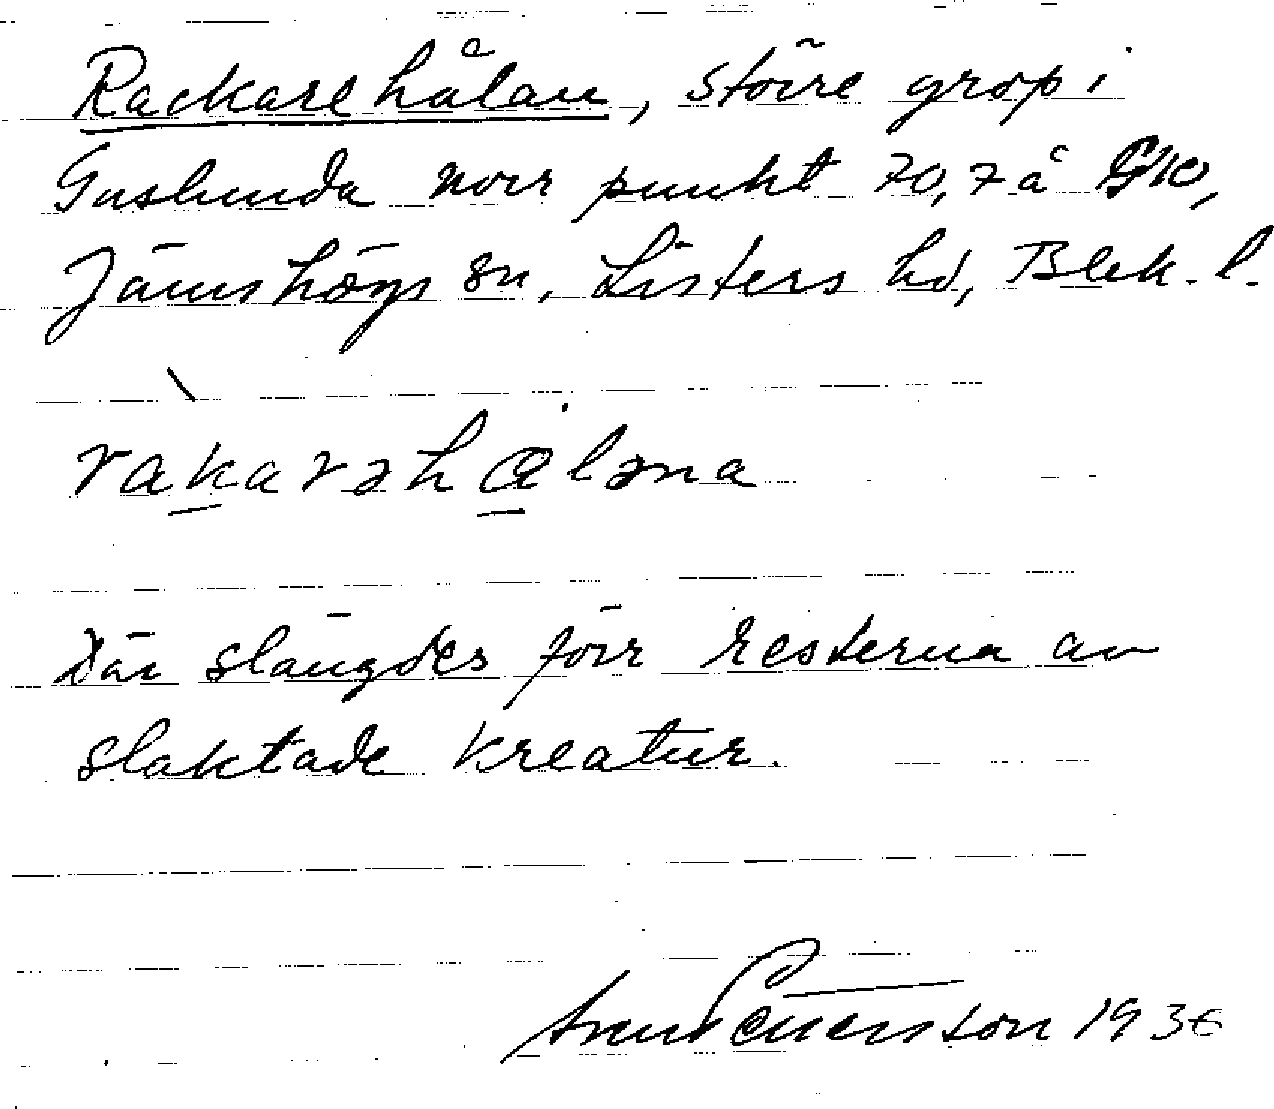 Rackarehålan, större grop i
Guslunda norr punkt 70,7 å GK,
Jämshögs sn, Listers hd, Blek. l.
ràkarəhɑləna
Där slängdes förr resterna av
slaktade kreatur.
Pettersson 1936